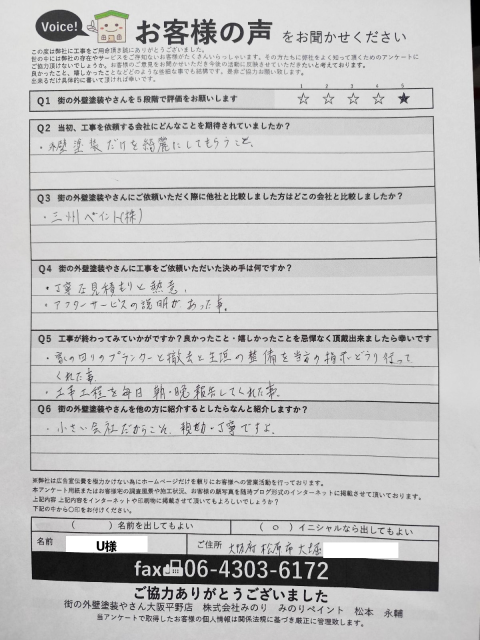 Voice!
お客様の声 をお聞かせください
この度は弊社に工事をご用命頂き誠にありがとうございました。
世の中には弊社の存在やサービスをご存知ないお客様がたくさんいらっしゃいます。その方たちに弊社をよく知って頂くためのアンケートに
ご協力頂けないでしょうか。お客様のご意見をお聞かせいただき今後の活動に反映させていただきたいと考えております。
良かったこと、嬉しかったことなどどのような些細な事でも結構です。是非ご協力お願い致します。
出来るだけ具体的に書いて頂ければ幸いです。
Q1 街の外壁塗装やさんを5段階で評価をお願いします
1 2 3 4 5
☆ ☆ ☆ ☆ ★
Q2 当初、工事を依頼する会社にどんなことを期待されていましたか?
・外壁塗装だけを綺麗にしてもらうこと。
Q3 街の外壁塗装やさんにご依頼いただく際に他社と比較しました方はどこの会社と比較しましたか?
・三州ペイント(株)
Q4 街の外壁塗装やさんに工事をご依頼いただいた決め手は何ですか?
・丁寧な見積もりと熱意。
・アフターサービスの説明があった事。
Q5 工事が終わってみていかがですか?良かったこと・嬉しかったことを忌憚なく頂戴出来ましたら幸いです
・家の回りのプランターと撤去と玉垣の整備を当方の指示どうり行って
くれた事。
・工事工程を毎日 朝・晩 報告してくれた事。
Q6 街の外壁塗装やさんを他の方に紹介するとしたらなんと紹介しますか?
・小さい会社だからこそ、親切・丁寧ですよ。
※弊社は広告宣伝費を極力かけない為にホームページだけを頼りにお客様への営業活動を行っております。
本アンケート用紙またはお客様宅の調査風景や施工状況、お客様の顔写真を随時ブログ形式のインターネットに掲載させて頂いております。
上記内容 上記内容をインターネットや印刷物に掲載させて頂いてもよろしいでしょうか?
下記の中から〇印をお付けください。
( ) 名前を出してもよい ( ○ ) イニシャルなら出してもよい
名前 U様 ご住所 大阪府松原市大堀
fax 06-4303-6172
ご協力ありがとうございました
街の外壁塗装やさん大阪平野店 株式会社みのり みのりペイント 松本 永輔
当アンケートで取得したお客様の個人情報は関係法規に基づき厳正に管理致します。